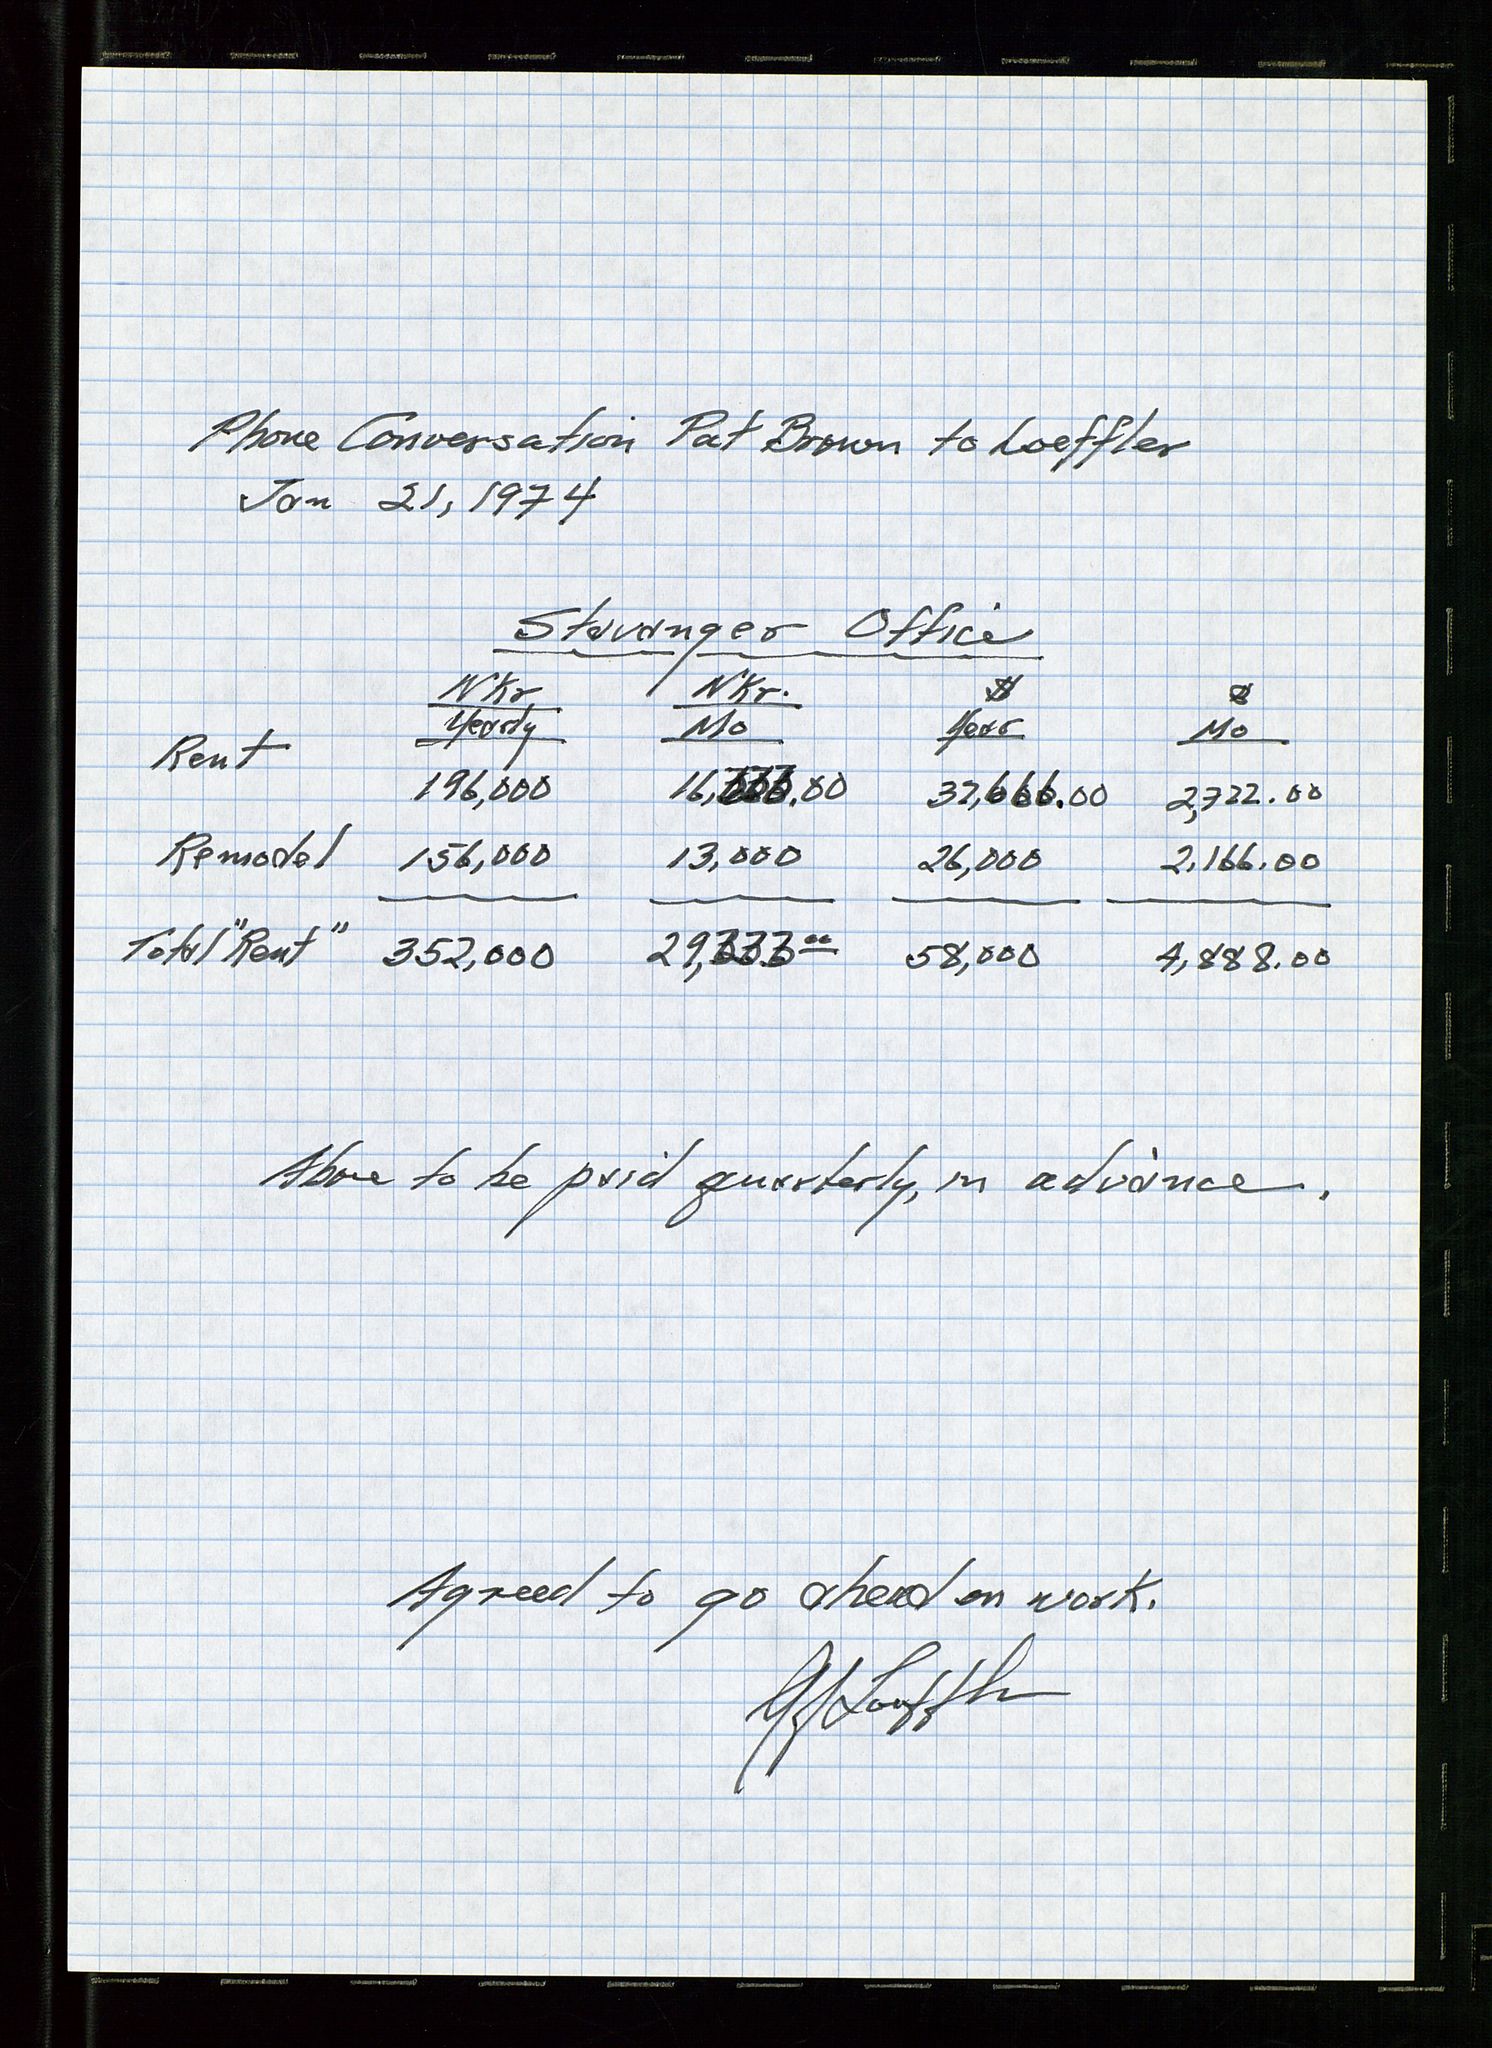 Phone Conversation Pat Brown to Loeffler
Jan 21, 1974
Stavanger Office
NKr NKr. $ $
Yearly Mo Year Mo
Rent
196,000 16,333.00 32,666.00 2,722.00
Remodel 156,000 13,000 26,000 2,166.00
Total "Rent" 352,000 29,333.00 58,000 4,888.00
Above to be paid quarterly, in advance.
Agreed to go ahead on work.
Loeffler